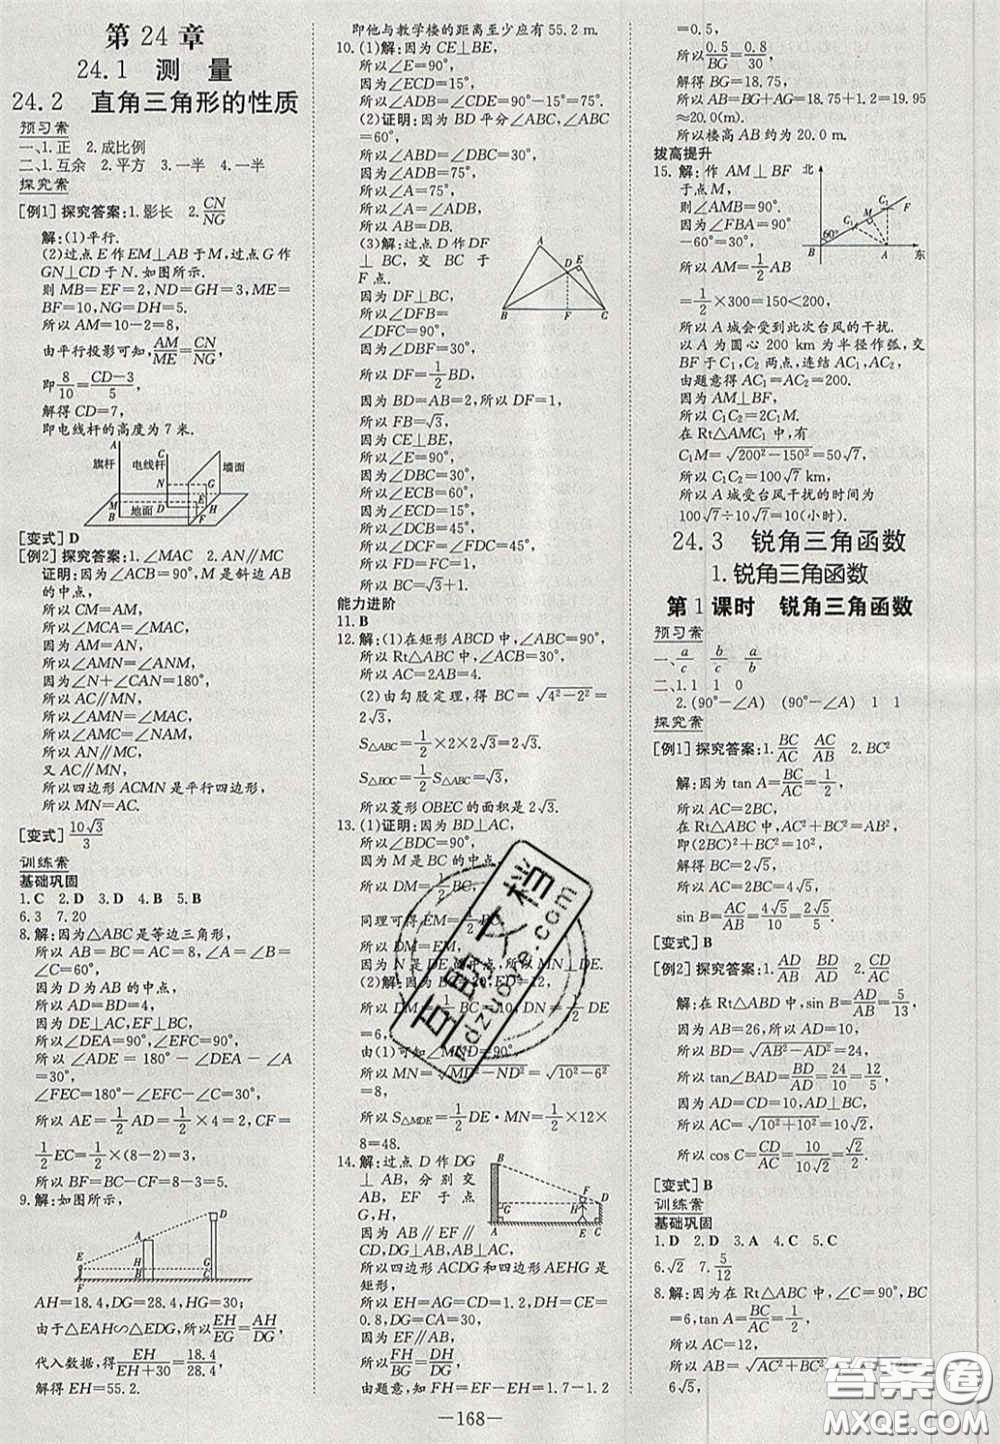 第24章
24.1 测 量
24.2 直角三角形的性质
预习案
一、1.正 2.成比例
二、1.互余 2.平方 3.一半 4.一半
探究案
[例1] 探究答案:1.影长 2.CN/NG
解:(1)平行.
(2)过点E作EM⊥AB于M,过点G作
GN⊥CD于N.如图所示.
则MB=EF=2,ND=GH=3,ME=
BF=10,NG=DH=5.
所以AM=10-2=8,
由平行投影可知,AM/ME=CN/NG,
即8/10=(CD-3)/5,
解得CD=7,
即电线杆的高度为7米.
A
旗杆
电线杆
C
墙面
N
G
M
E
B
地面
D
F
H
[变式] D
[例2] 探究答案:1.∠MAC 2.AN∥MC
证明:因为∠ACB=90°,M是斜边AB
的中点,
所以CM=AM,
所以∠MCA=∠MAC,
因为AN=AM,
所以∠AMN=∠ANM,
因为∠AMN=∠MAC,
所以∠ANM=∠MCA,
因为∠AMC+∠CAN=180°,
所以AC∥MN,
又AC∥MN,
所以四边形ACMN是平行四边形,
所以MN=AC.
[变式] 10√3/3
训练案
基础巩固
1.C 2.D 3.D 4.B 5.B
6.3 7.20
8.解:因为△ABC是等边三角形,
所以AB=BC=AC=8,∠A=∠B=
∠C=60°,
因为D为AB的中点,
所以AD=BD=4,
因为DE⊥AC,EF⊥BC,
所以∠DEA=90°,∠EFC=90°,
所以∠ADE=180°-∠DEA-∠A
=30°,
∠FEC=180°-∠EFC-∠C=30°,
所以AE=1/2AD=1/2×4=2,CF
=1/2EC=1/2×(8-2)=3,
所以BF=BC-CF=8-3=5.
9.解:如图所示,
D
A
E
H
G
F
B
C
AH=18.4,DG=28.4,HG=30;
由于△EAH∽△EDG,所以EH/EG=AH/DG,
代入数据,得EH/(EH+30)=18.4/28.4,
解得EH=55.2,
即他与教学楼的距离至少应有55.2 m.
10.(1)解:因为CE⊥BE,
所以∠E=90°,
因为∠ECD=15°,
所以∠ADB=∠CDE=90°-15°=75°.
(2)证明:因为BD平分∠ABC,∠ABC
=60°,
所以∠ABD=∠DBC=30°,
因为∠ADB=75°,
所以∠A=75°,
所以∠A=∠ADB,
所以AB=DB.
(3)解:过点D作DF
⊥BC,交BC于
F点.
因为DF⊥BC,
所以∠DFB=
∠DFC=90°,
因为∠DBF=30°,
所以DF=1/2BD,
因为BD=AB=2,所以DF=1,
所以FB=√3,
因为CE⊥BE,
所以∠E=90°,
因为∠DBC=30°,
A
D
E
B
F
C
所以∠BCE=60°,
因为∠ECD=15°,
所以∠DCB=45°,
因为∠DFC=90°,
所以∠FDC=45°,
所以FD=FC=1,
所以BC=√3+1.
能力进阶
11.B
12.解:(1)在矩形ABCD中,∠ABC=90°,
所以Rt△ABC中,∠ACB=30°,
所以AC=2AB=4.
(2)由勾股定理,得BC=√(4²-2²)=
2√3,
S△ABC=1/2×2×2√3=2√3.
S△BOC=1/2S△ABC=√3.
所以菱形OBEC的面积是2√3.
13.(1)证明:因为BD⊥AC,
所以∠BDC=90°,
因为M是BC的中点,
所以DM=1/2BC,
同理可得EM=1/2BC,
所以DM=EM,
因为N是DE的中点,所以MN⊥DE.
(2)解:因为BC=20,ED=12,
所以DM=1/2BC=10,DN=1/2DE
=6,
由(1)可知∠MND=90°,
所以MN=√(MD²-ND²)=√(10²-6²)
=8,
所以S△MDE=1/2DE·MN=1/2×12×
8=48.
14.解:过点D作DG
⊥AB,分别交
AB,EF于点
G,H,
因为AB∥EF∥CD,DG⊥AB,
B
F
G
H
D
A
E
C
所以四边形ACDG和四边形AEHG是
矩形,
所以EH=AG=CD=1.2,DH=CE=
0.8,DG=CA=30,
因为EF∥AB,
所以FH/BG=DH/DG,
由题意,知FH=EF-EH=1.7-1.2
=0.5,
所以0.5/BG=0.8/30,
解得BG=18.75,
所以AB=BG+AG=18.75+1.2=19.95
≈20.0(m).
所以楼高AB约为20.0 m.
拔高提升
15.解:作AM⊥BF
于点M,
则∠AMB=90°,
因为∠FBA=90°
-60°=30°,
所以AM=1/2AB
=1/2×300=150<200,
北
C₂
F
M
C₁
60°
B
A
东
所以A城会受到此次台风的干扰.
以A为圆心200 km为半径作弧,交
BF于C₁,C₂两点,连结AC₁,AC₂,
由题意得AC₁=AC₂=200.
因为AM⊥BF,
所以C₁C₂=2C₁M.
在Rt△AMC₁中,有
C₁M=√(200²-150²)=50√7,
所以C₁C₂=100√7.
所以A城受台风干扰的时间为
100√7÷10√7=10(小时).
24.3 锐角三角函数
1.锐角三角函数
第1课时 锐角三角函数
预习案
一、a/c b/c a/b
二、1.1 1 0
2.(90°-∠A) (90°-∠A) 1 1
探究案
[例1] 探究答案:1.BC/AC AC/AB 2.BC²
解:因为tan A=BC/AC=1/2,
所以AC=2BC,
在Rt△ABC中,BC²+AC²=AB²,
即(2BC)²+BC²=10²,
解得BC=2√5,所以AC=4√5,
sin B=AC/AB=4√5/10=2√5/5.
[变式] B
[例2] 探究答案:1.AD/AB BD/AD 2.CD/AC
解:在Rt△ABD中,sin B=AD/AB=5/13,
因为AD=10,所以AB=26.
所以BD=√(AB²-AD²)=24.
所以tan∠BAD=BD/AD=24/10=12/5,
因为AD=CD=10,
所以AC=√(10²+10²)=10√2,
所以cos C=CD/AC=10/(10√2)=√2/2.
[变式] B
训练案
基础巩固
1.D 2.D 3.A 4.C 5.C
6.√2 7.5/12
8.解:因为在Rt△ABC中,∠C=90°,BC=
6√5.
168
答案圈
MXQE.COM